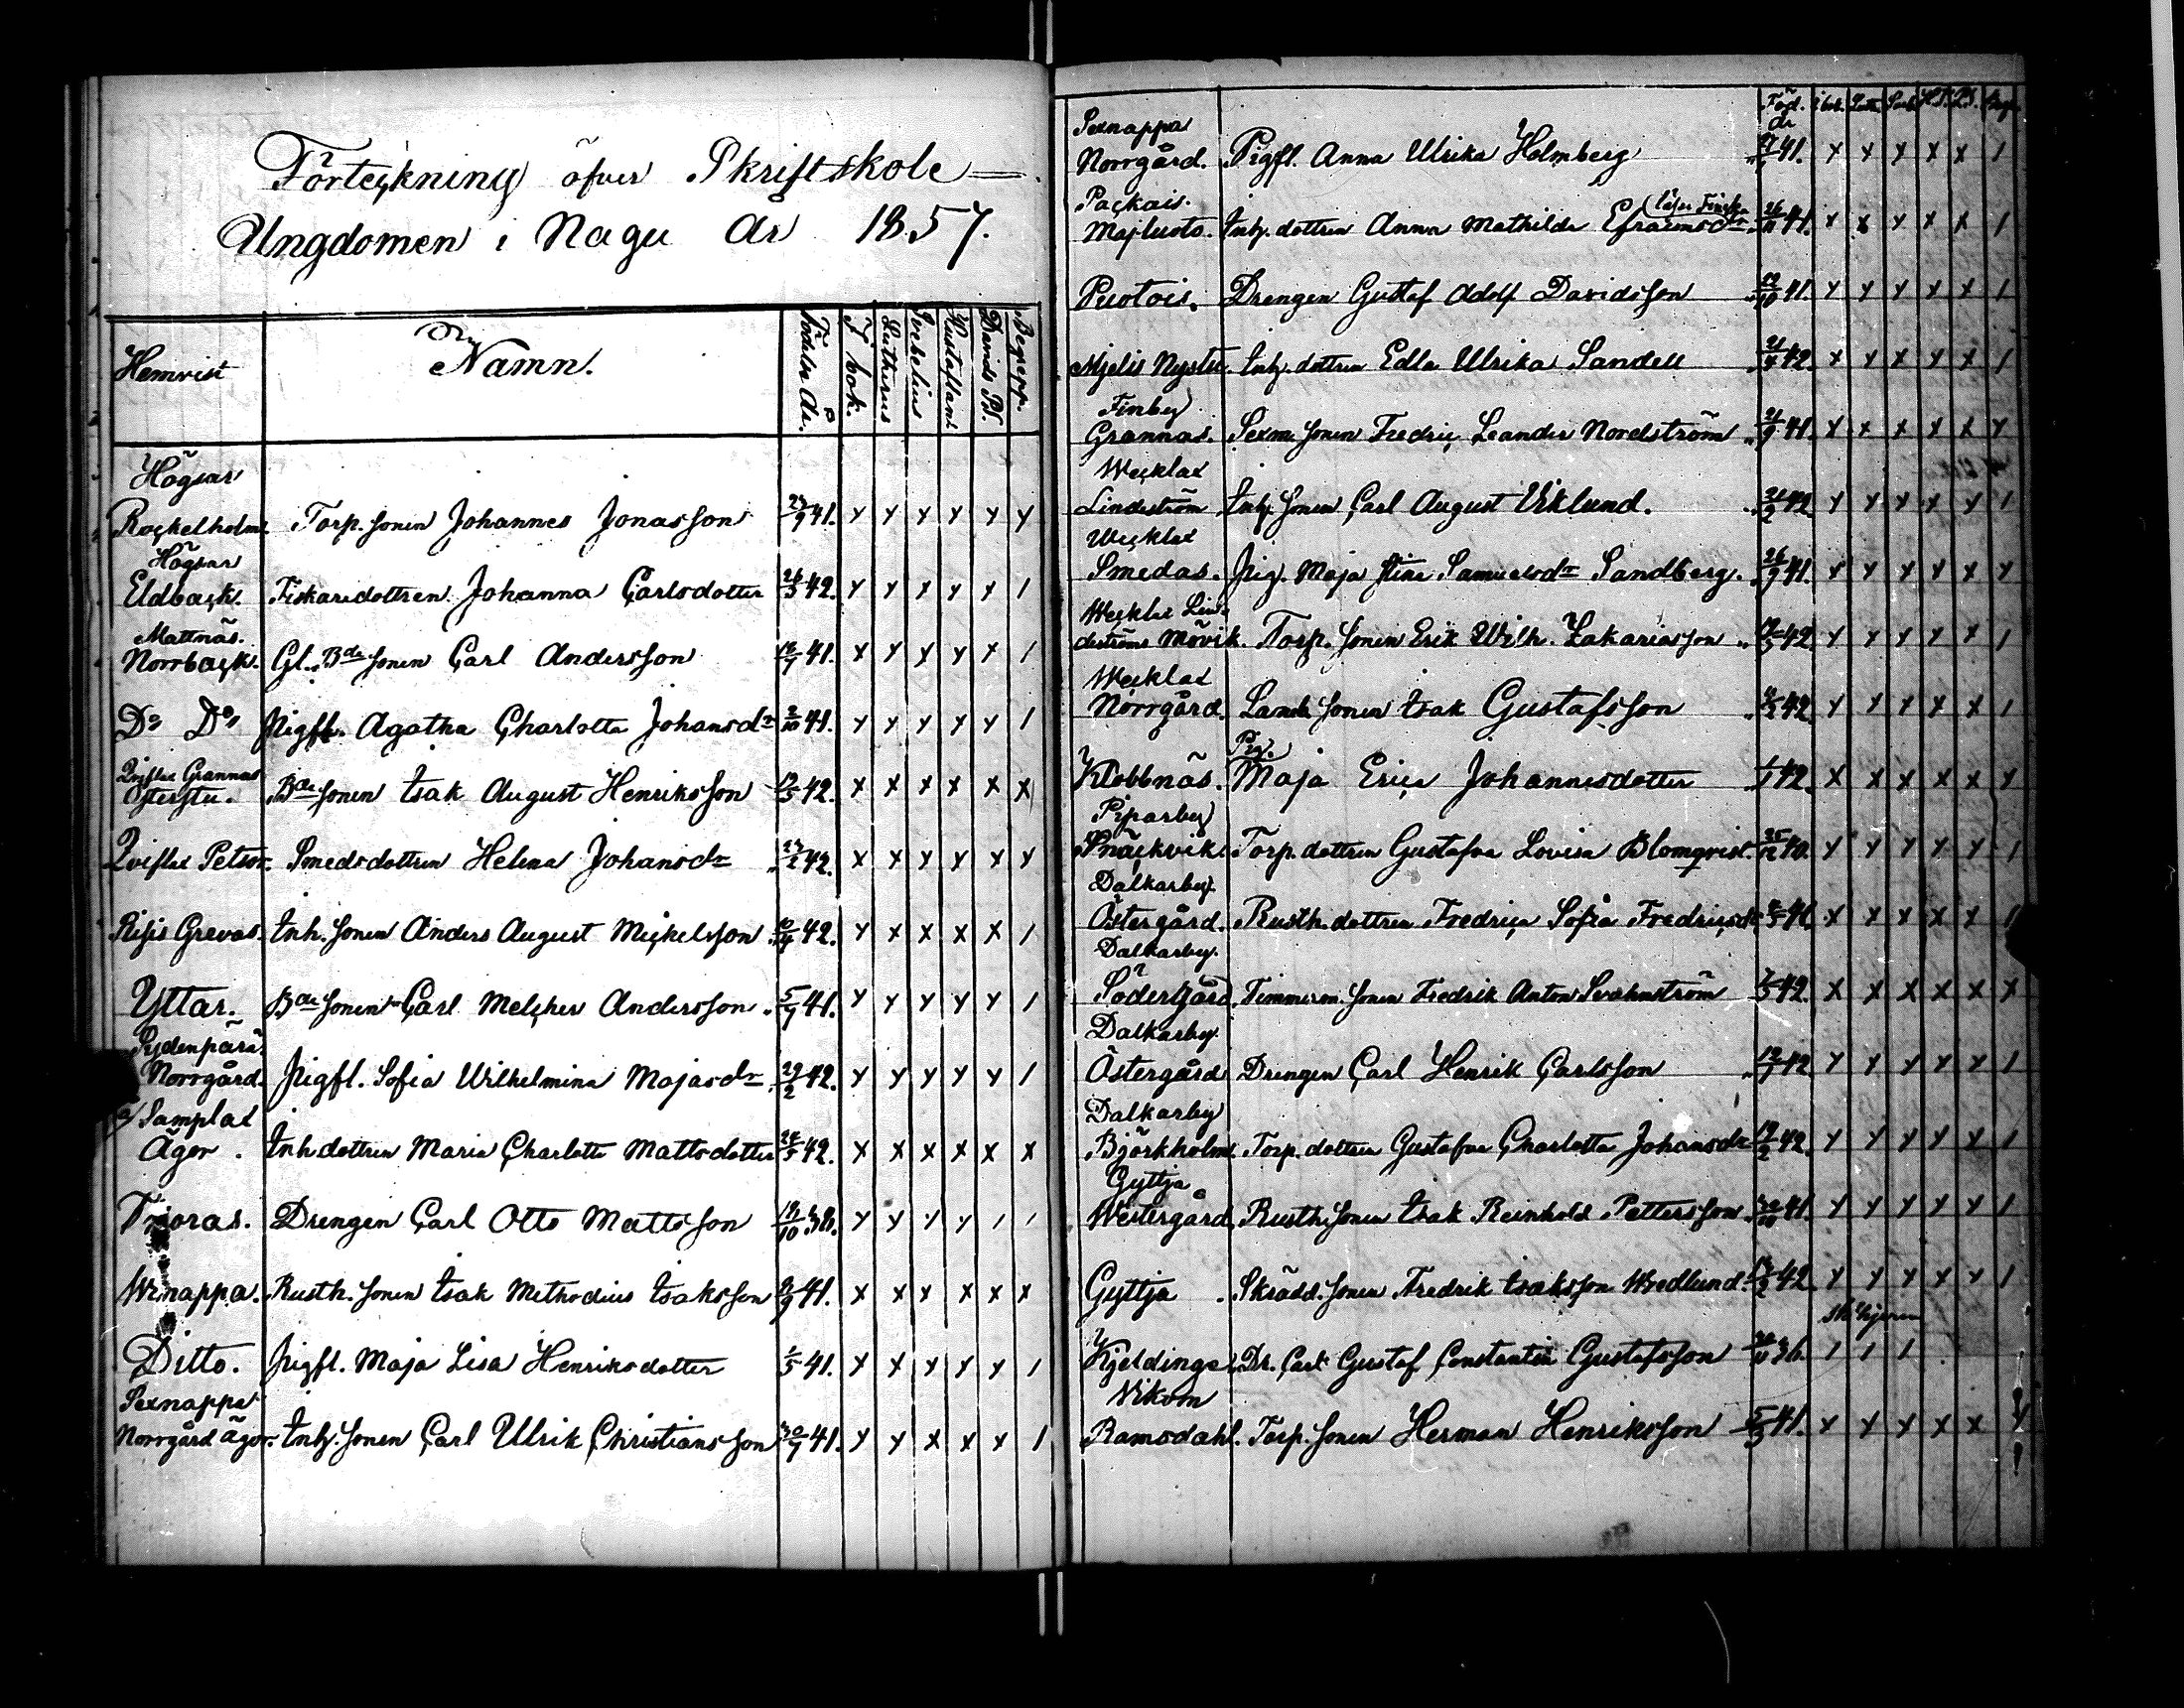 Förteckning öfver Skriftskole-
Ungdomen i Nagu år 1857.
Hemvist Namn. Födelse År. I bok. Lutherus Svebelius Hustaflan Davids Ps. Begrepp.
Högsar
Rockelholm Torp. sonen Johannes Jonasson 41. x x x x x x
Högsar
Eldback. Fiskaredottren Johanna Carlsdotter 42. x x x x x /
Mattnäs.
Norrback. Gl. Bde sonen Carl Andersson 41. x x x x x /
Do Do Pigfl. Agatha Charlotta Johansdr 2/10 41. x x x x x /
Qviflax Grannas
Österstu. Bde sonen Isak August Henriksson 42. x x x x x x
Qviflax Petsor. Smedsdottren Helena Johansdr 42. x x x x x x
Risis Grevas. Inh. sonen Anders August Mickelsson 42. x x x x x /
Yttar. Bde sonen Carl Melcher Andersson 41. x x x x x /
Sydenpärä
Norrgård. Pigfl. Sofia Wilhelmina Majasdr 42. x x x x x /
Samplax
Ägor. Inh dottren Maria Charlotta Mattsdotter 42. x x x x x x
Drengen Carl Otto Mattsson 18/10 38. x x x x / /
Rusth. sonen Isak Methodius Isaksson 41. x x x x x x
Ditto. Pigfl. Maja Lisa Henriksdotter 1/5 41. x x x x x /
Sexnappa
Norrgård ägor. Inh. sonen Carl Ulrik Christiansson 30/7 41. x x x x x /
Föd. år i bok. Luth. Sveb. H.T. D.Ps. Begr.
Sexnappa
Norrgård. Pigfl. Anna Ulrika Holmberg 41. x x x x x /
Packais. läser Finska
Majluoto. Inh. dottren Anna Mathilda Efraimsdr 41. x x x x x /
Puotois. Drengen Gustaf Adolf Davidsson 41. x x x x x /
Mjelis Nystu. Inh. dottren Edla Ulrika Sandell 42. x x x x x /
Finby
Grannas. Sexm. sonen Fredric Leander Nordström 41. x x x x x x
Wecklax
Lindström Inh. sonen Carl August Viklund. 42 x x x x x /
Wecklax
Smedas. Pig. Maja Stina Samuelsdr Sandberg. 26/9 41. x x x x x x
Wecklax Lin-
deströms Mövik. Torp. sonen Erik Wilh. Zakariasson 42. x x x x x /
Wecklax
Norrgård. sonen Isak Gustafsson 42 x x x x x /
Pig.
Klobbnäs. Maja Erica Johannesdotter 42. x x x x x x
Piparby
Snäckvik. Torp. dottren Gustafva Lovisa Blomqvist. 25/12 40. x x x x x /
Dalkarby.
Östergård. Rusth. dottren Fredrica Sofia Fredricsdr x x x x x /
Dalkarby.
Södergård. Timmerm. sonen Fredrik Anton Svahnström 42. x x x x x x
Dalkarby.
Östergård Drengen Carl Henrik Carlsson 42 x x x x x /
Dalkarby
Björkholm. Torp. dottren Gustafva Charlotta Johansdr 19/2 42. x x x x x /
Gyttja
Westergård Rusth. sonen Isak Reinhold Pettersson 41. x x x x x /
Gyttja Skrädd. sonen Fredrik Isaksson Wredlund. 42. x x x x x /
Kjeldinge Dr. Carl Gustaf Constantin Gustafsson 36. / / /
Vikom
Ramsdahl. Torp. sonen Herman Henriksson 41. x x x x x x